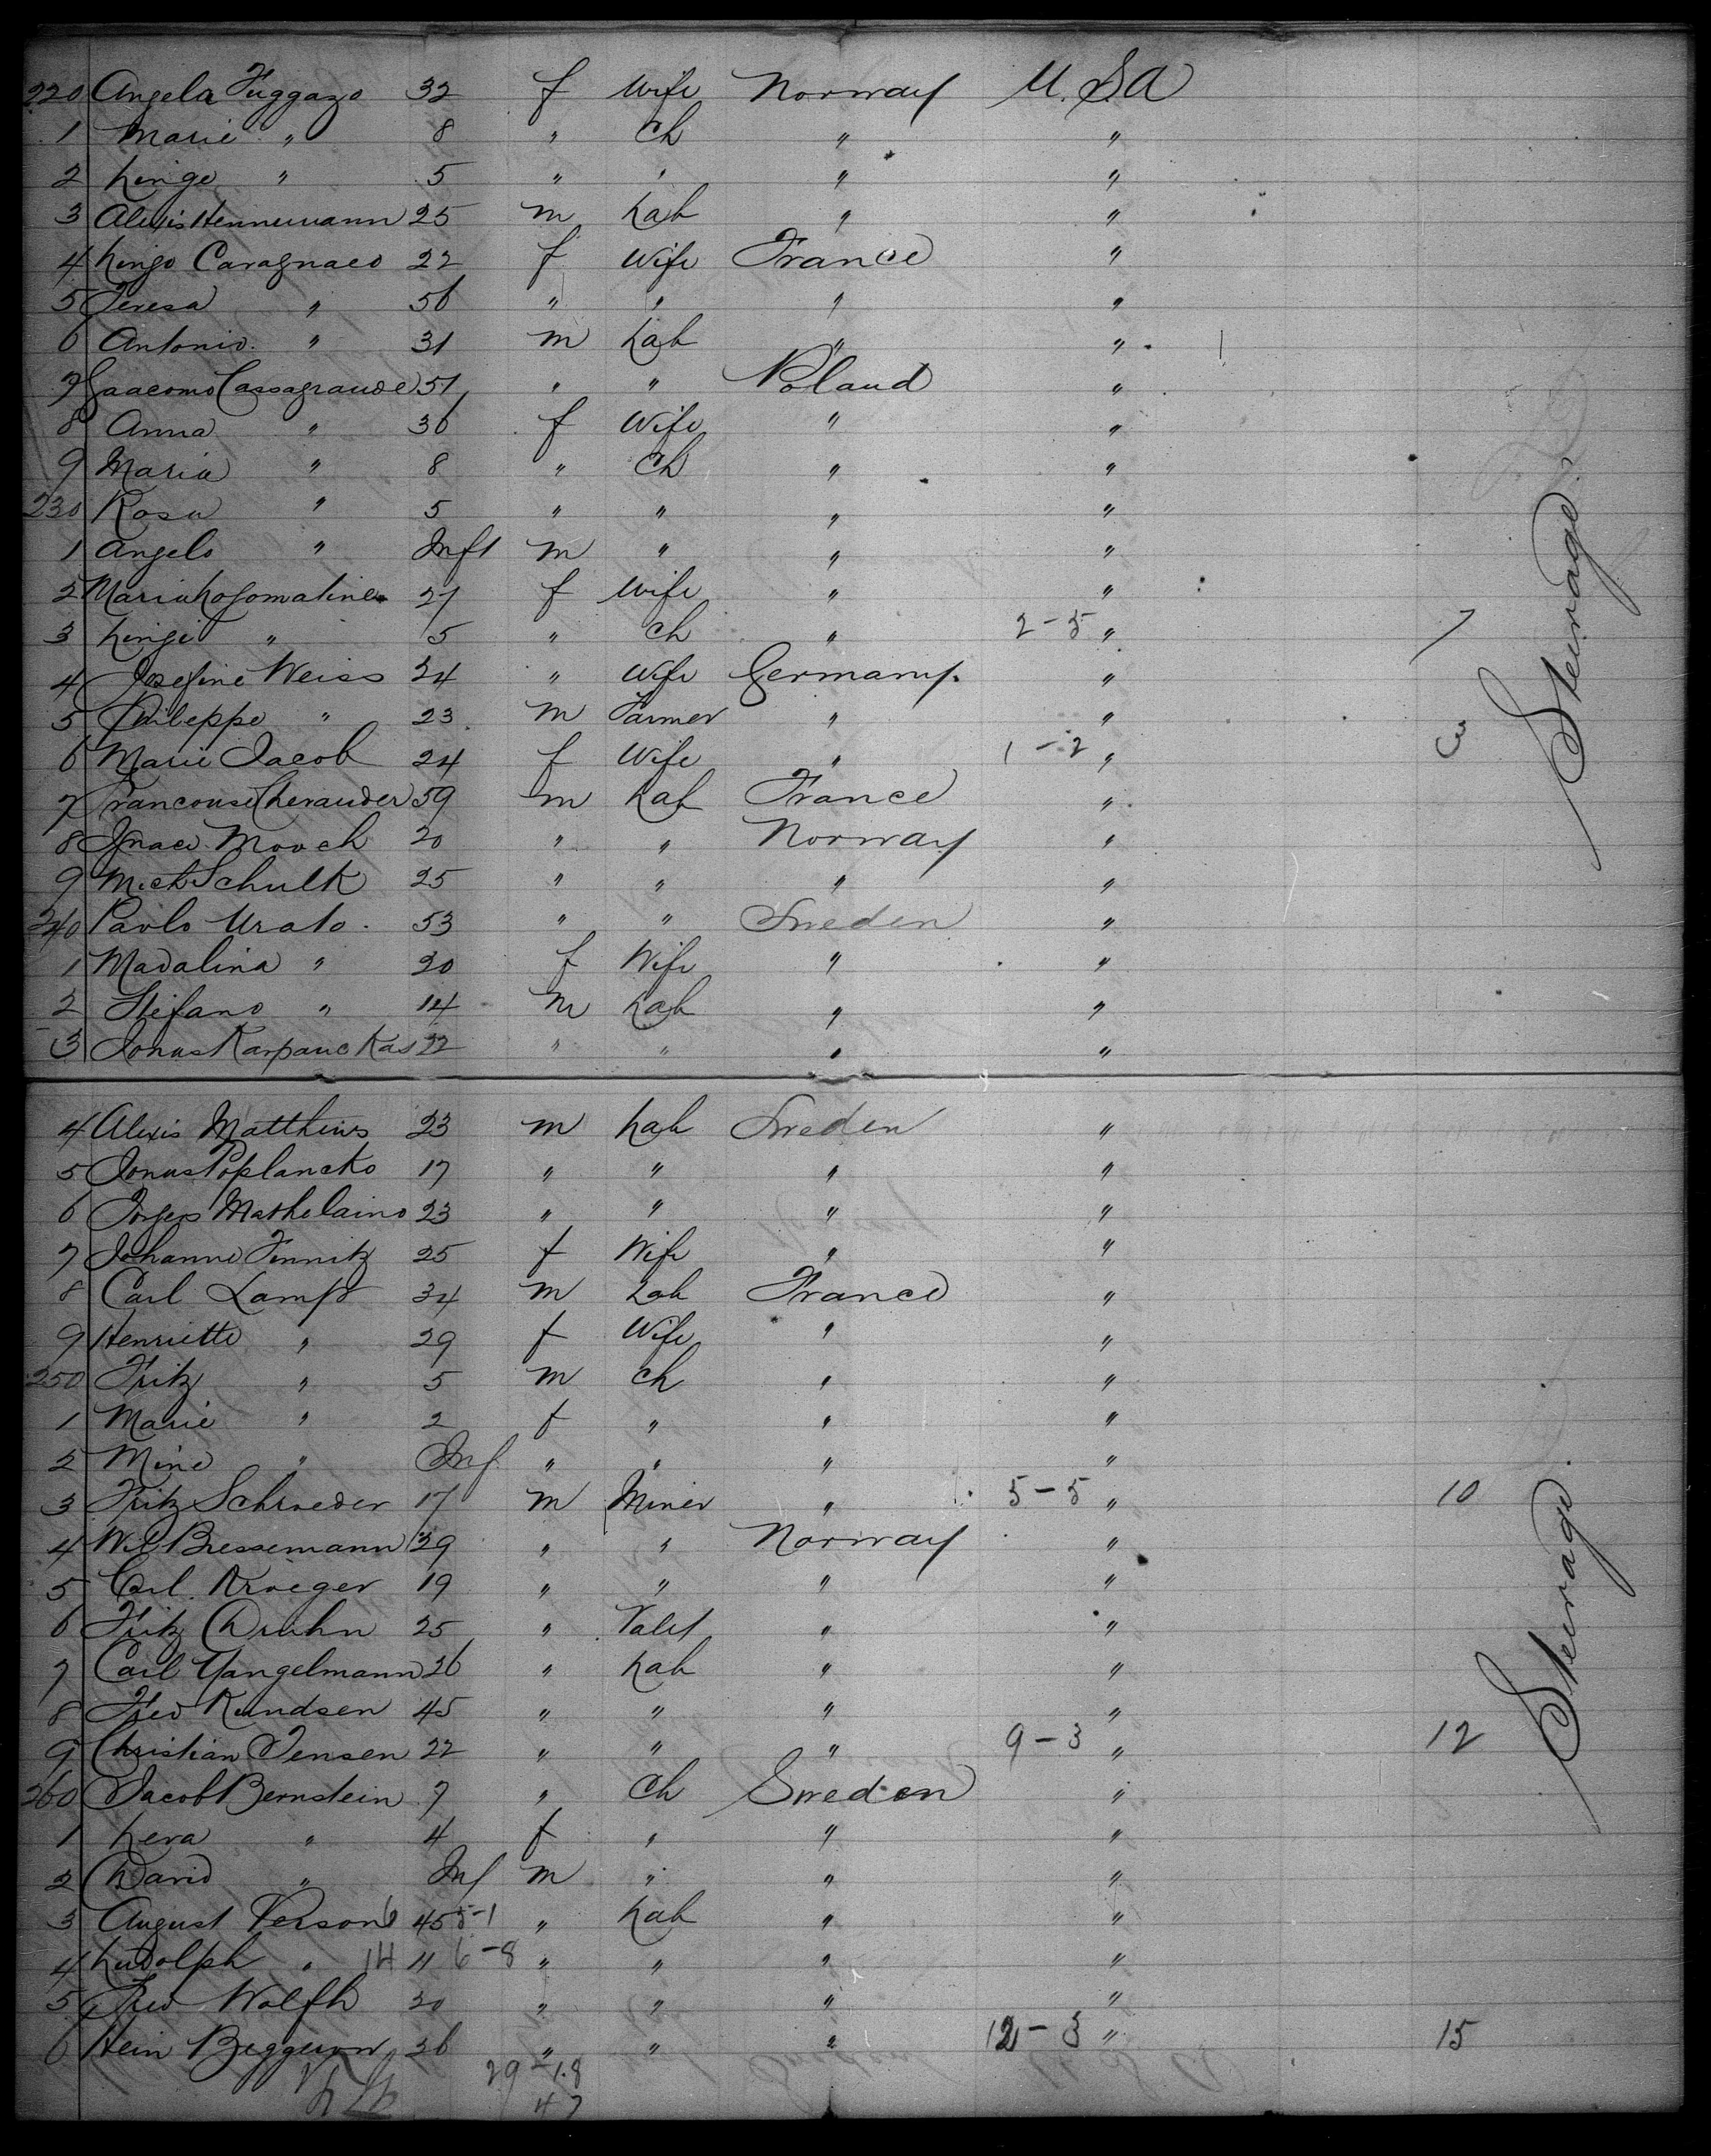 220 Angela Fuggazo 32 f Wife Norway U.S.A
1 Marie " 8 " Ch " "
2 Luigo " 5 " " " "
3 Alexis Hennemann 25 m Lab " "
4 Luigo Caragnaeo 22 f Wife France "
5 Teresa " 56 " " " "
6 Antonio " 31 m Lab " "
7 Gaacomo Cassagrande 51 " " Poland "
8 Anna " 36 f Wife " "
9 Maria " 8 " Ch " "
230 Rosa " 5 " " " "
1 Angelo " Inft m " " "
2 Maria 27 f Wife " "
3 Luigi " 5 " Ch " 2-5 " 7
4 Josefine Weiss 24 " Wife Germany "
5 " 23 m Farmer " "
6 Marie Jacob 24 f Wife " 1-2 " 3
7 59 m Lab France "
8 Ignace Mooch 20 " " Norway "
9 Mich Schulk 25 " " " "
240 Paolo Urato 53 " " Sweden "
1 Madalina " 20 f Wife " "
2 Stefano " 14 m Lab " "
3 Jonas Karpauckas 22 " " " "
4 Alexis Matthews 23 m Lab Sweden "
5 Jonas Poplancko 17 " " " "
6 Mathelaino 23 " " " "
7 Johanne Finnitz 25 f Wife " "
8 Carl Lamp 34 m Lab France "
9 Henriette " 29 f Wife " "
250 Fritz " 5 m Ch " "
1 Marie " 2 f " " "
2 Mine " Inf " " " "
3 Fritz Schroeder 17 m Miner " 5-5 " 10
4 Wil Bressemann 29 " " Norway "
5 Carl Kroeger 19 " " " "
6 Fritz Druhn 25 " Valet " "
7 Carl Mangelmann 26 " Lab " "
8 Fred Kundsen 45 " " " "
9 Christian Jensen 22 " " " 9-3 " 12
260 Jacob Bernstein 7 " Ch Sweden "
1 Lera " 4 f " " "
2 David " Inf m " " "
3 August Person 45 5-1 " Lab " "
4 Ludolph " 14 11 6-8 " " " "
5 Fred Wolfh 30 " " " "
6 Hein 26 " " " 12-3 " 15
29-18
47
Steerage
Steerage